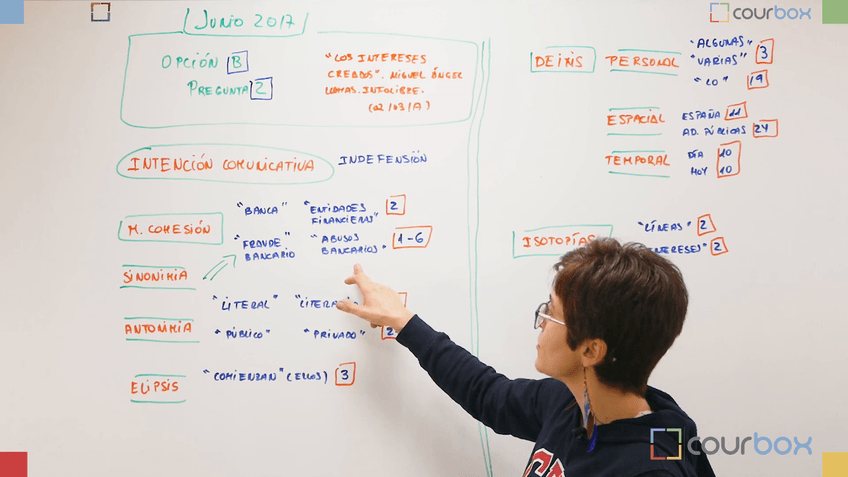 JUNIO 2017
OPCIÓN B
PREGUNTA 2
"LOS INTERESES
CREADOS". MIGUEL ÁNGEL
LOMAS. INFOLIBRE.
(02/03/A)
INTENCIÓN COMUNICATIVA
INDEFENSIÓN
M. COHESIÓN
"BANCA" "ENTIDADES FINANCIERAS" 2
"FRAUDE" BANCARIO "ABUSOS BANCARIOS" 1-6
SINONIMIA
"LITERAL"
ANTONIMIA
"PÚBLICO" "PRIVADO" 2
ELIPSIS
"COMIENZAN" (ELLOS) 3
DEIXIS
PERSONAL
"ALGUNAS"
"VARIAS" 3
"LO" 19
ESPACIAL
ESPAÑA 11
AD. PÚBLICAS 24
TEMPORAL
DÍA 10
HOY 10
ISOTOPÍAS
"LÍNEAS" 2
NTERESES" 2
courbox
courbox